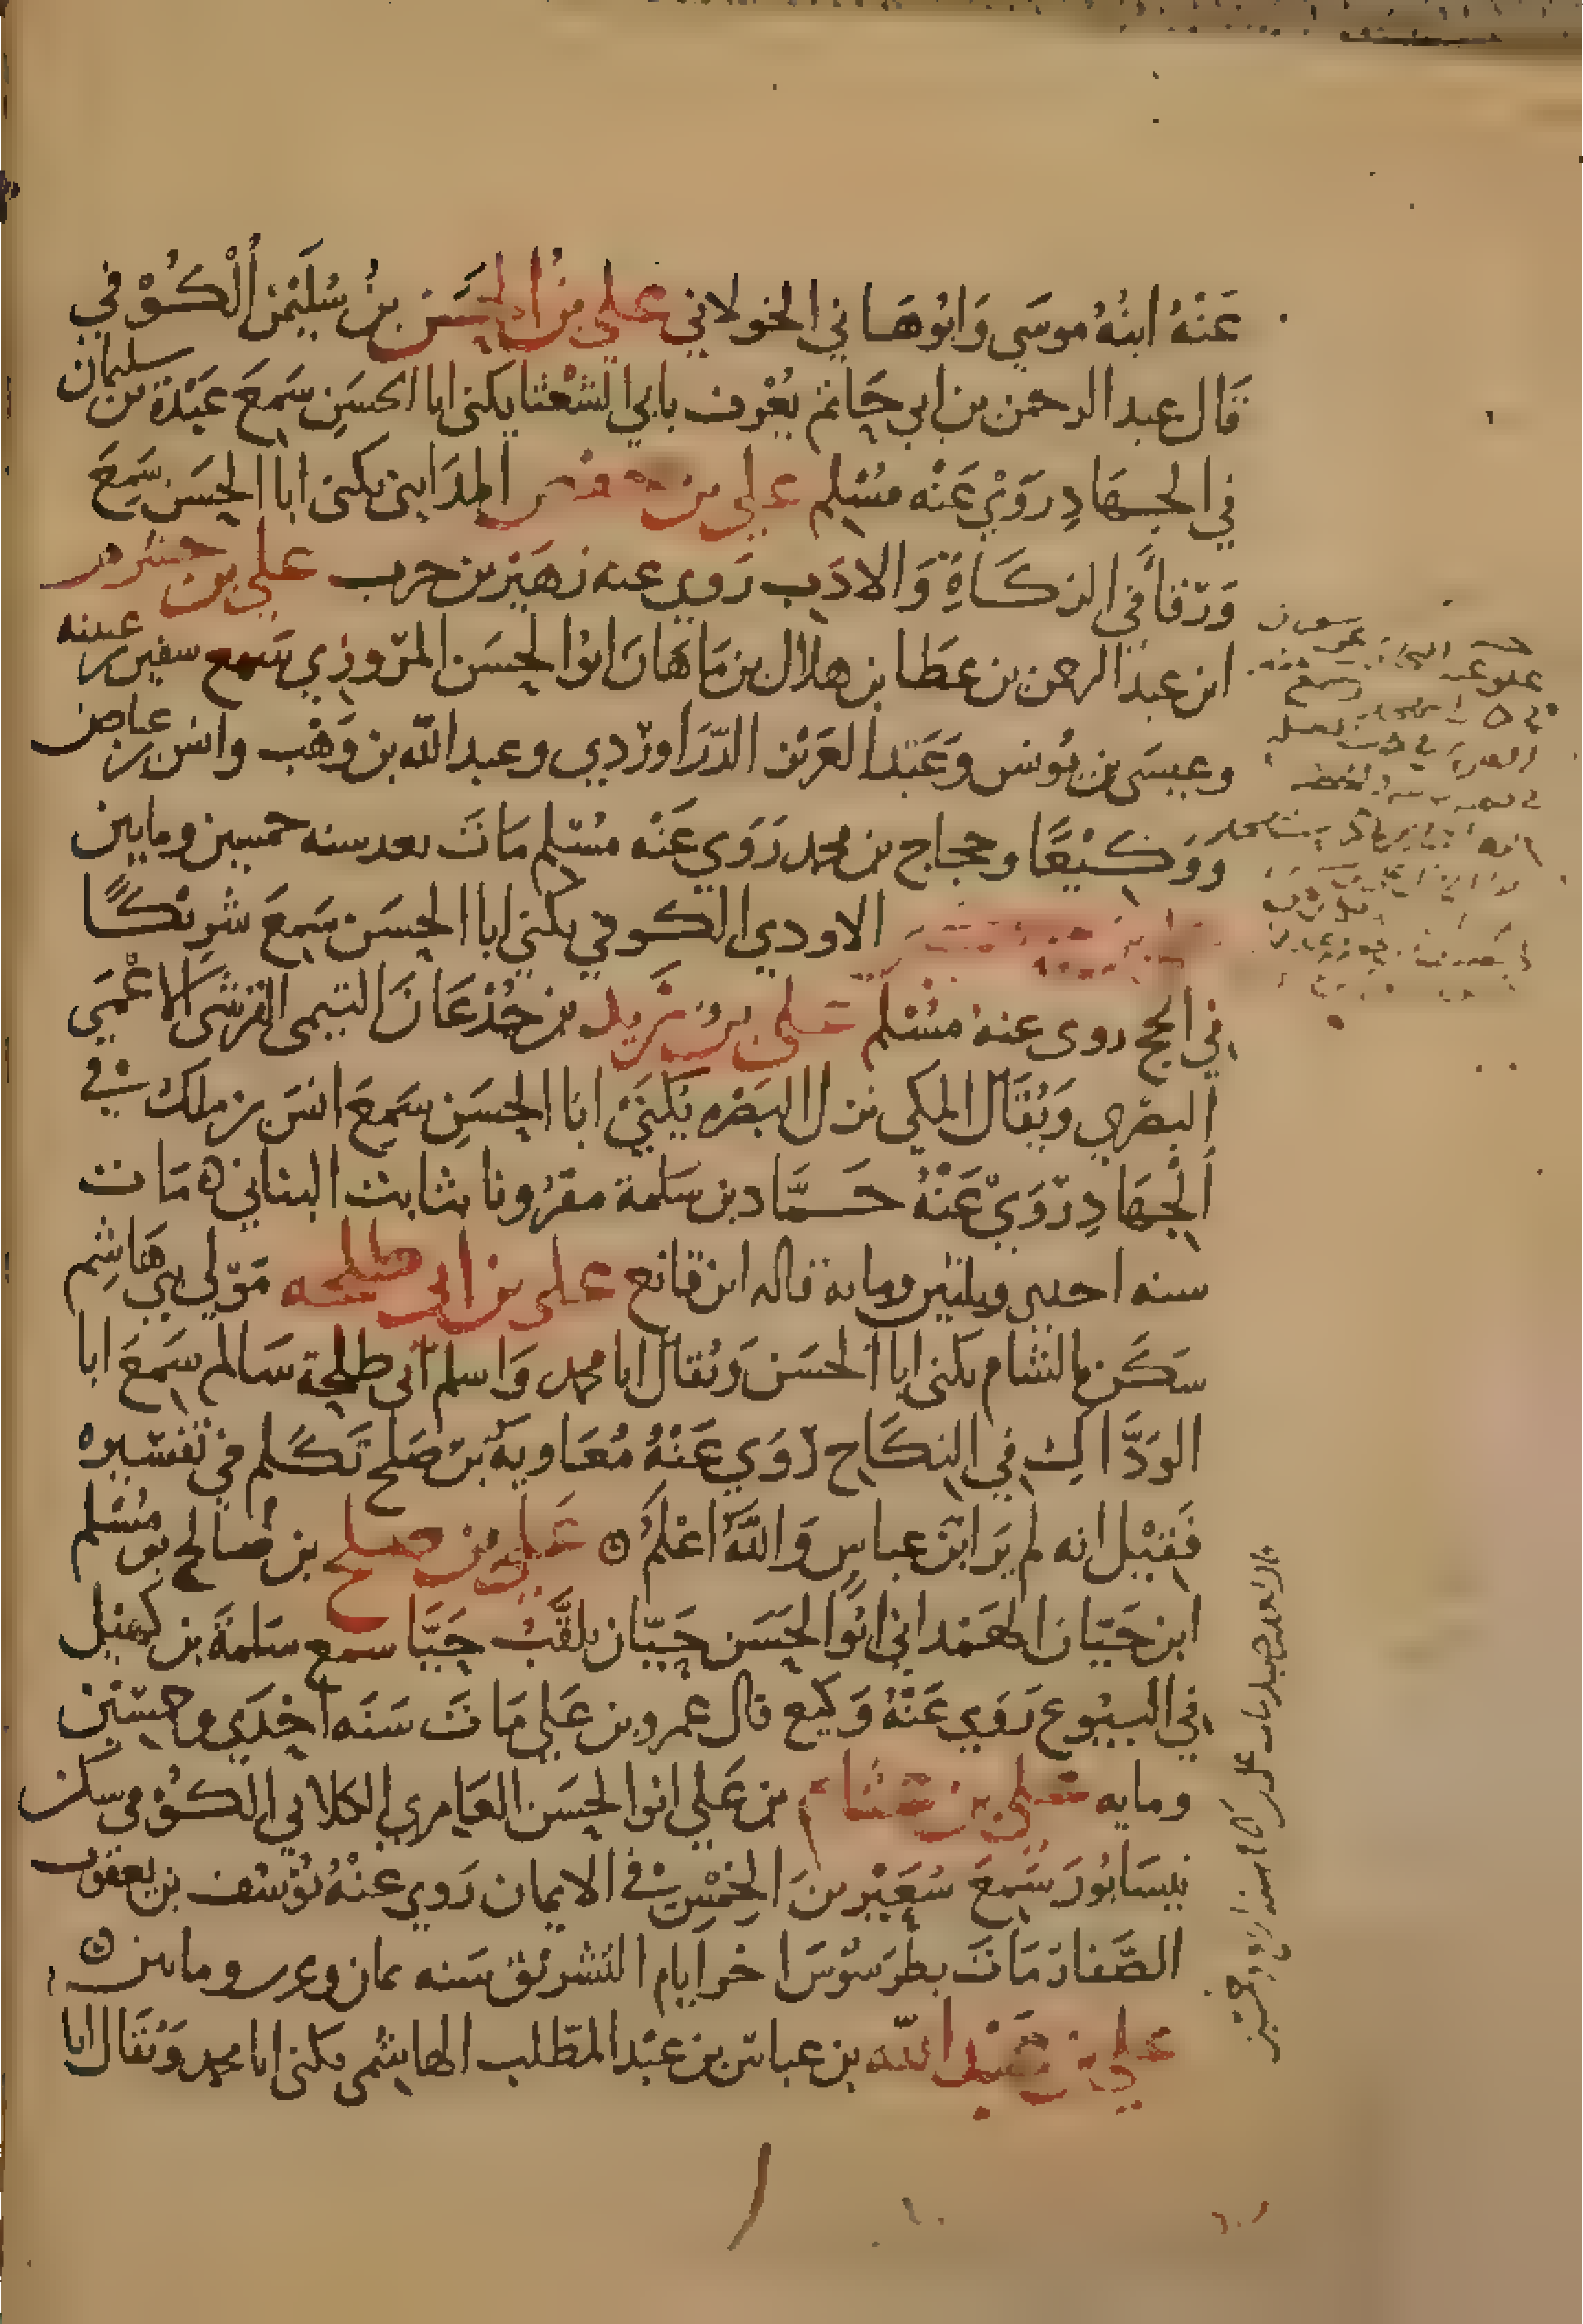 عَنْهُ ابنُهُ موسَي وَابُوهَاني الخولاني علي بنُ الحسَن بنُ سُلَيْمٰن اُلْكُوْفي
قَال عبد الرحمن بن ابي حَاتم يُعْرف بابي الشعْثا يكنى ابا الحسَنِ سَمِعَ عَبْدَة بن سليمان
في الجهَادِ رَوَيْ عَنْه مسْلم علي بن حفص المدَايني يكنى ابا الحسَن سَمِعَ
وَرْقاً في الزكَاةِ وَالادَبِ رَوي عنه زهَيْر بن حرب علي بن خشرم
ابن عبد الرحمن بن عطا بن هلال بن مَاهَان ابوا الحسَن المرْوزي سَمِع سفين بن عيينه
وعيسَى بن يُونس وَعَبْد العَزيْز الدّرَاورْدي وعبد الله بن وَهْب وانس بن عياض
وَوَكيْعًا وحجاج بن محمد رَوَي عَنْه مسْلم مَاتَ بعد سنه خمسين ومايتين
الاودي الكوفي يكني ابا الحسَن سَمِعَ شَريْكًا
في الحج روى عنهُ مسْلم علي بن زيد بن جُدْعَانَ التيمى القرشى الاعْمَي
البصْري وَيُقَال المكي نزل البَصْره يُكَنَيَ ابَا الحسَنِ سَمِعَ انسَ بن ملك في
الجهَادِ رَوَيْ عَنْهُ حَمَّاد بن سَلمة مقرُونا بثابت البناني ه مَات
سنه احدي وثلثين ومايه قاله ابن قانع علي بن ابي طلحه مَوْلي بني هَاشِم
سَكَن بالشام يكنى ابا الحسَن وَيُقال ابا محمد وَاسم ابى طلحة سَالم سَمِعَ ابا
الوَدَّاكِ في النكَاحِ رَوَي عَنْهُ مُعَاوية بن صَلح تكَلم في تفسْيره
فَقيْل انه لم يَرَ ابْن عباسٍ وَاللهُ اعْلمُ ه عَلي بن صلح بن صَالح بن مسْلم
ابن حَيّان الهَمْداني ابُوا الحسَن حَيّان يلقَّبُ حَيّا سمع سَلمَة بن كهيْل
في البيُوع رَوَي عَنْهُ وَكيع قال عمرو بن عَلي مَاتَ سَنَه احْدَي وخمسْين
ومايه علي بن عثام بن عَلي ابوا الحسَن العَامري الكلابي الكُوْفي سكن
نيسَابُورَ سَمِعَ سُعَيْر بن الخِمْسِ في الايمان رَوي عَنْهُ يُوسُف بن يعقوب
الصَّفارُ مَاتَ بطرسُوْسَ اخر ايام التشريْق سَنه ثمان وعشرين ومايتين ه
علي بن عَبْد الله بن عباسْ بن عبْد المطّلب الهاشمى يكنى ابا محمد وَيُقَال ابا